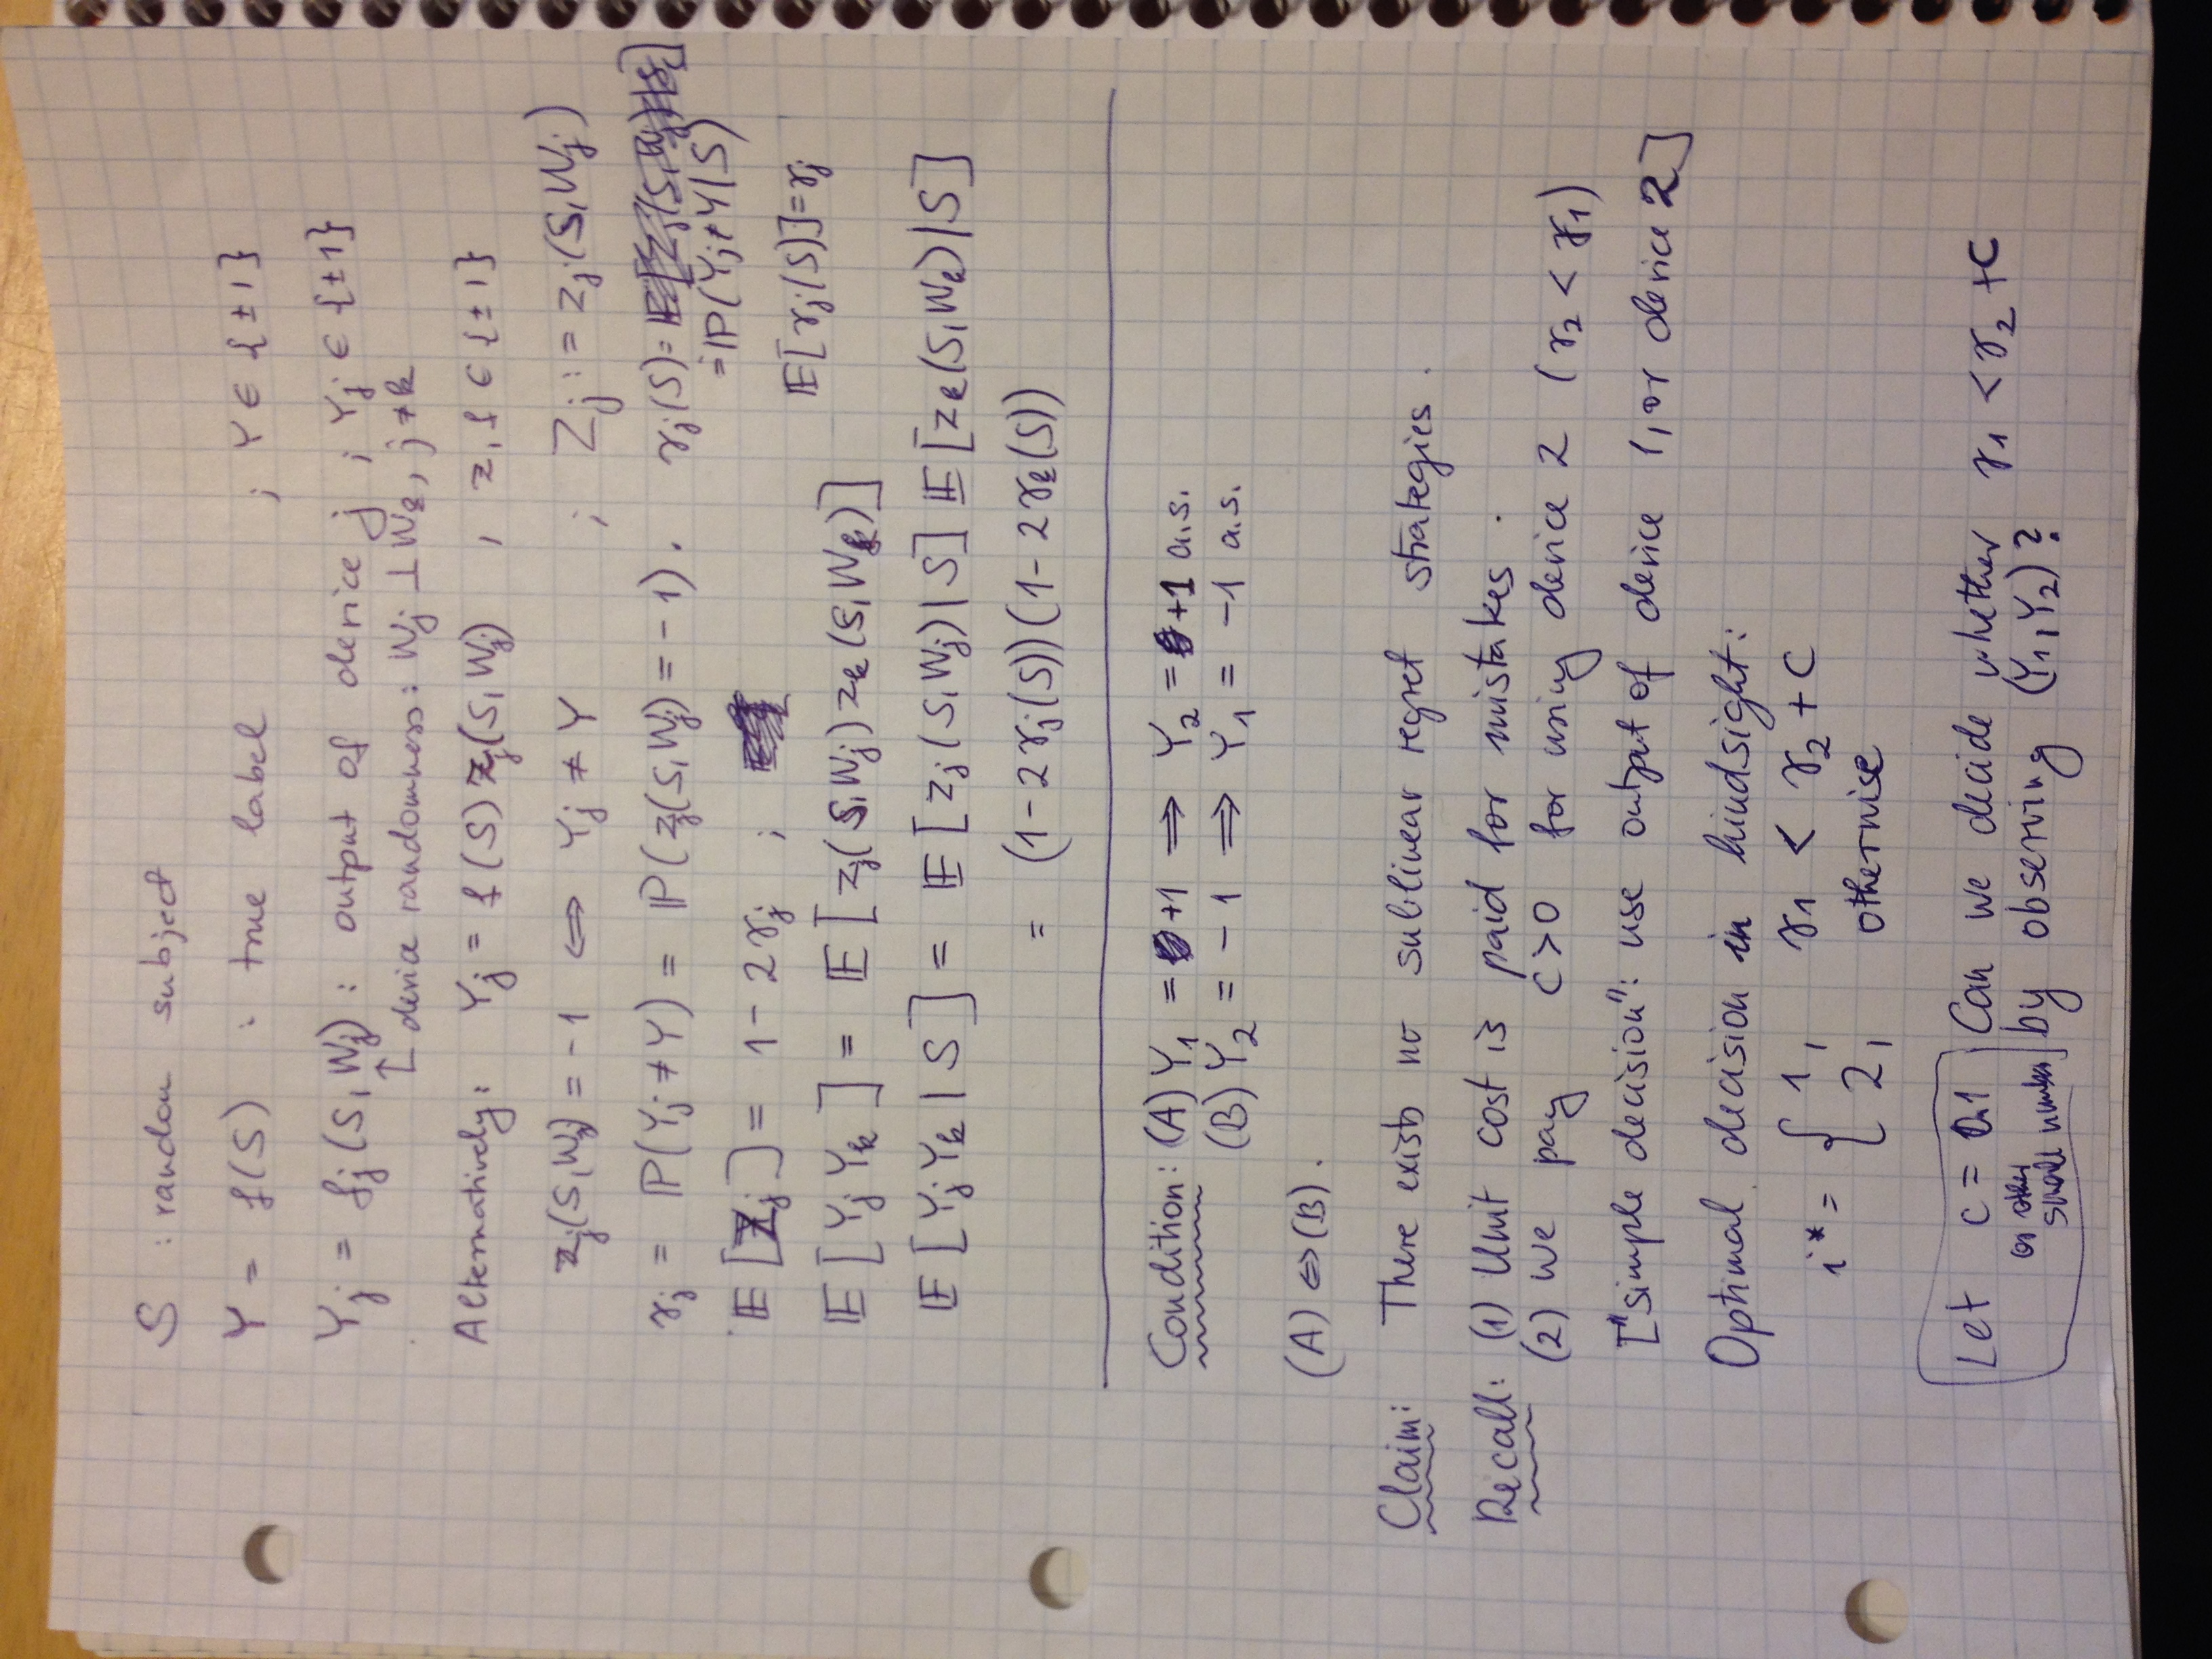 S : random subject
Y = f(S) : true label ; Y ∈ {±1}
Y_j = f_j(S, W_j) : output of device j ; Y_j ∈ {±1}
↑ device randomness: W_j ⊥ W_k, j ≠ k
Alternatively: Y_j = f(S) z_j(S, W_j) , z, f ∈ {±1}
z_j(S, W_j) = -1 ⇔ Y_j ≠ Y ; Z_j := z_j(S, W_j)
γ_j = ℙ(Y_j ≠ Y) = ℙ(z_j(S, W_j) = -1). γ_j(S) =
= ℙ(Y_j ≠ Y | S)
𝔼[Z_j] = 1 - 2γ_j ;
𝔼[γ_j(S)] = γ_j
𝔼[Y_j Y_k] = 𝔼[z_j(S, W_j) z_k(S, W_k)]
𝔼[Y_j Y_k | S] = 𝔼[z_j(S, W_j) | S] 𝔼[z_k(S, W_k) | S]
= (1 - 2γ_j(S))(1 - 2γ_k(S))
Condition: (A) Y_1 = +1 ⟹ Y_2 = +1 a.s.
(B) Y_2 = -1 ⟹ Y_1 = -1 a.s.
(A) ⇔ (B).
Claim: There exists no sublinear regret strategies.
Recall: (1) Unit cost is paid for mistakes.
(2) We pay C>0 for using device 2 (γ_2 < γ_1)
["simple decision": use output of device 1, or device 2]
Optimal decision in hindsight:
i* = { 1, γ_1 < γ_2 + C
2, otherwise
Let c = 0.1 Can we decide whether γ_1 < γ_2 + C
or other
small number by observing (Y_1, Y_2)?